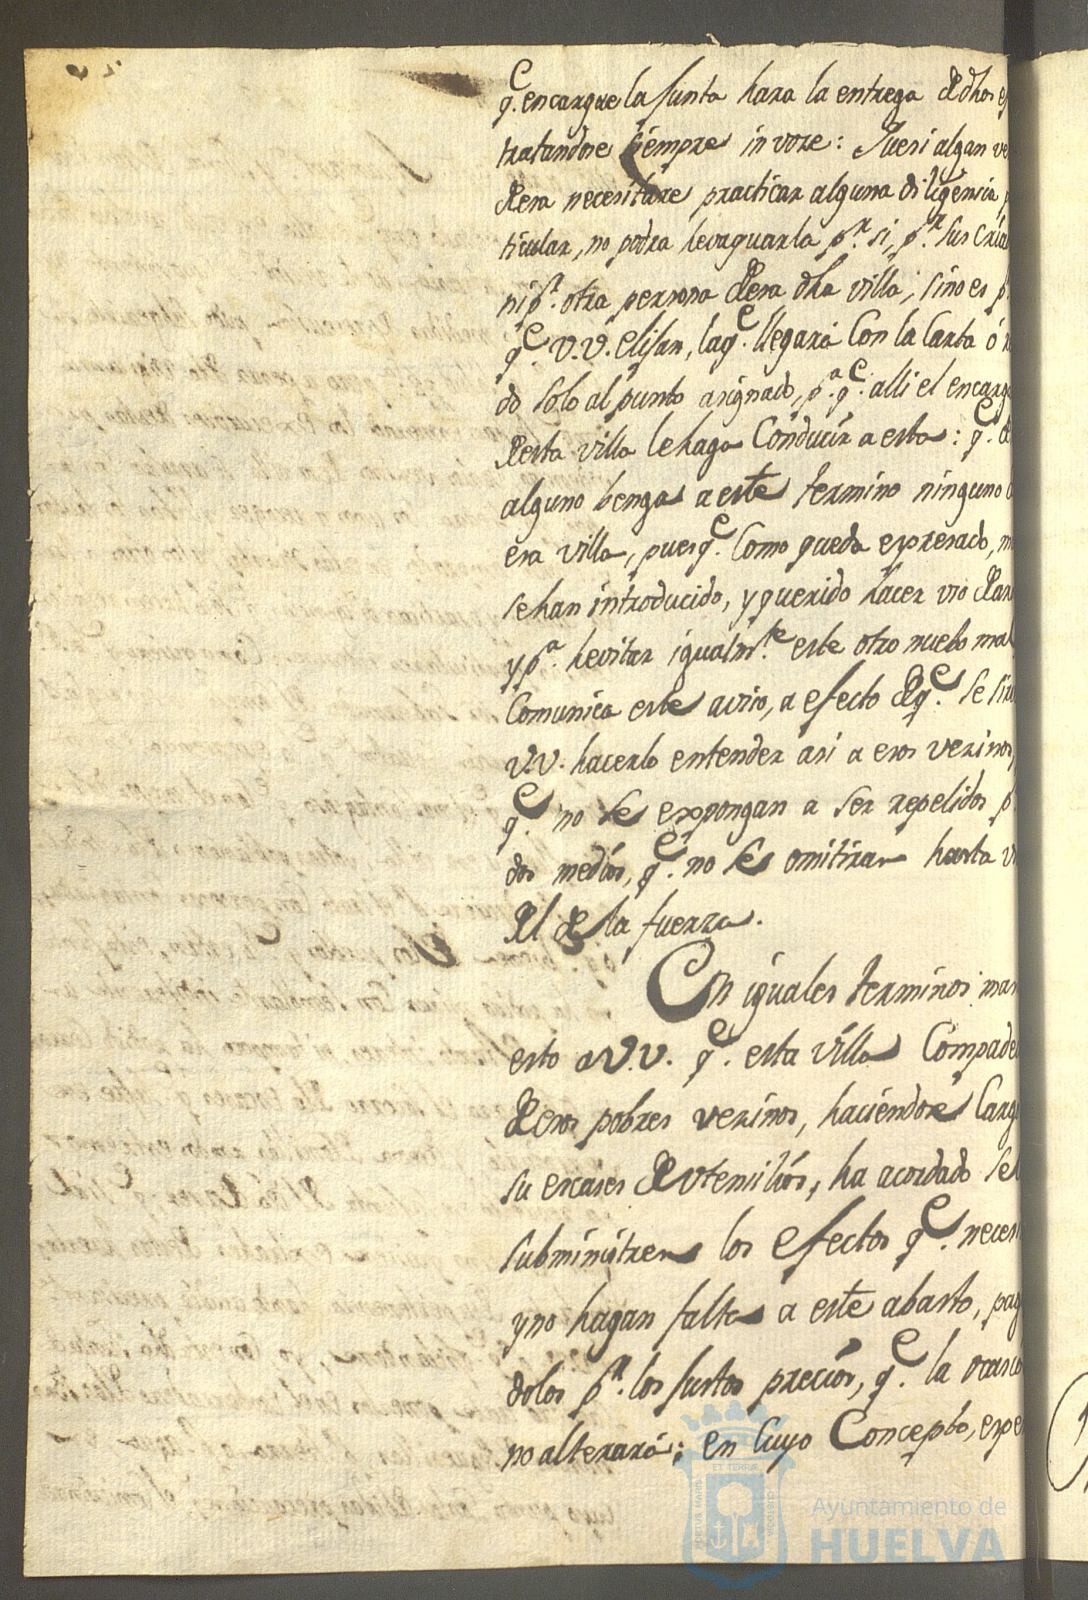 q.e encargue la Junta hara la entrega de dhos
tratandose siempre in voze: Puesi algan
de esa necesitare practicar alguna diligencia
ticular, no podra hevaguarla p.r si, p.r sus
ni p.r otra persona de esa dha villa; sino es
q.e V.V. elijan, la q.e llegará Con la Carta ó
do solo al punto asignado, p.a q.e alli el
de esta villa le haga Conducir a esta: q.e
alguno benga a este termino ninguno
esa villa, pues q.e Como queda expresado,
se han introducido, y querido hacer uso
y p.a hevitar igualm.te este otro nuebo mal
Comunica este aviso, a efecto de q.e se
V.V. hacerlo entender asi a esos vezinos,
q.e no se expongan a ser repelidos
dos medios, q.e no se omitiran hasta
del de la fuerza.
En iguales terminos
esto a V.V. q.e esta villa
de esos pobres vezinos, haciendose
su escases de utensilios, ha acordado
subministren los efectos q.e
y no hagan falta a este abasto,
dolos p.r los justos precios, q.e la
no alterará; en cuyo Concepto,
Ayuntamiento de
HUELVA